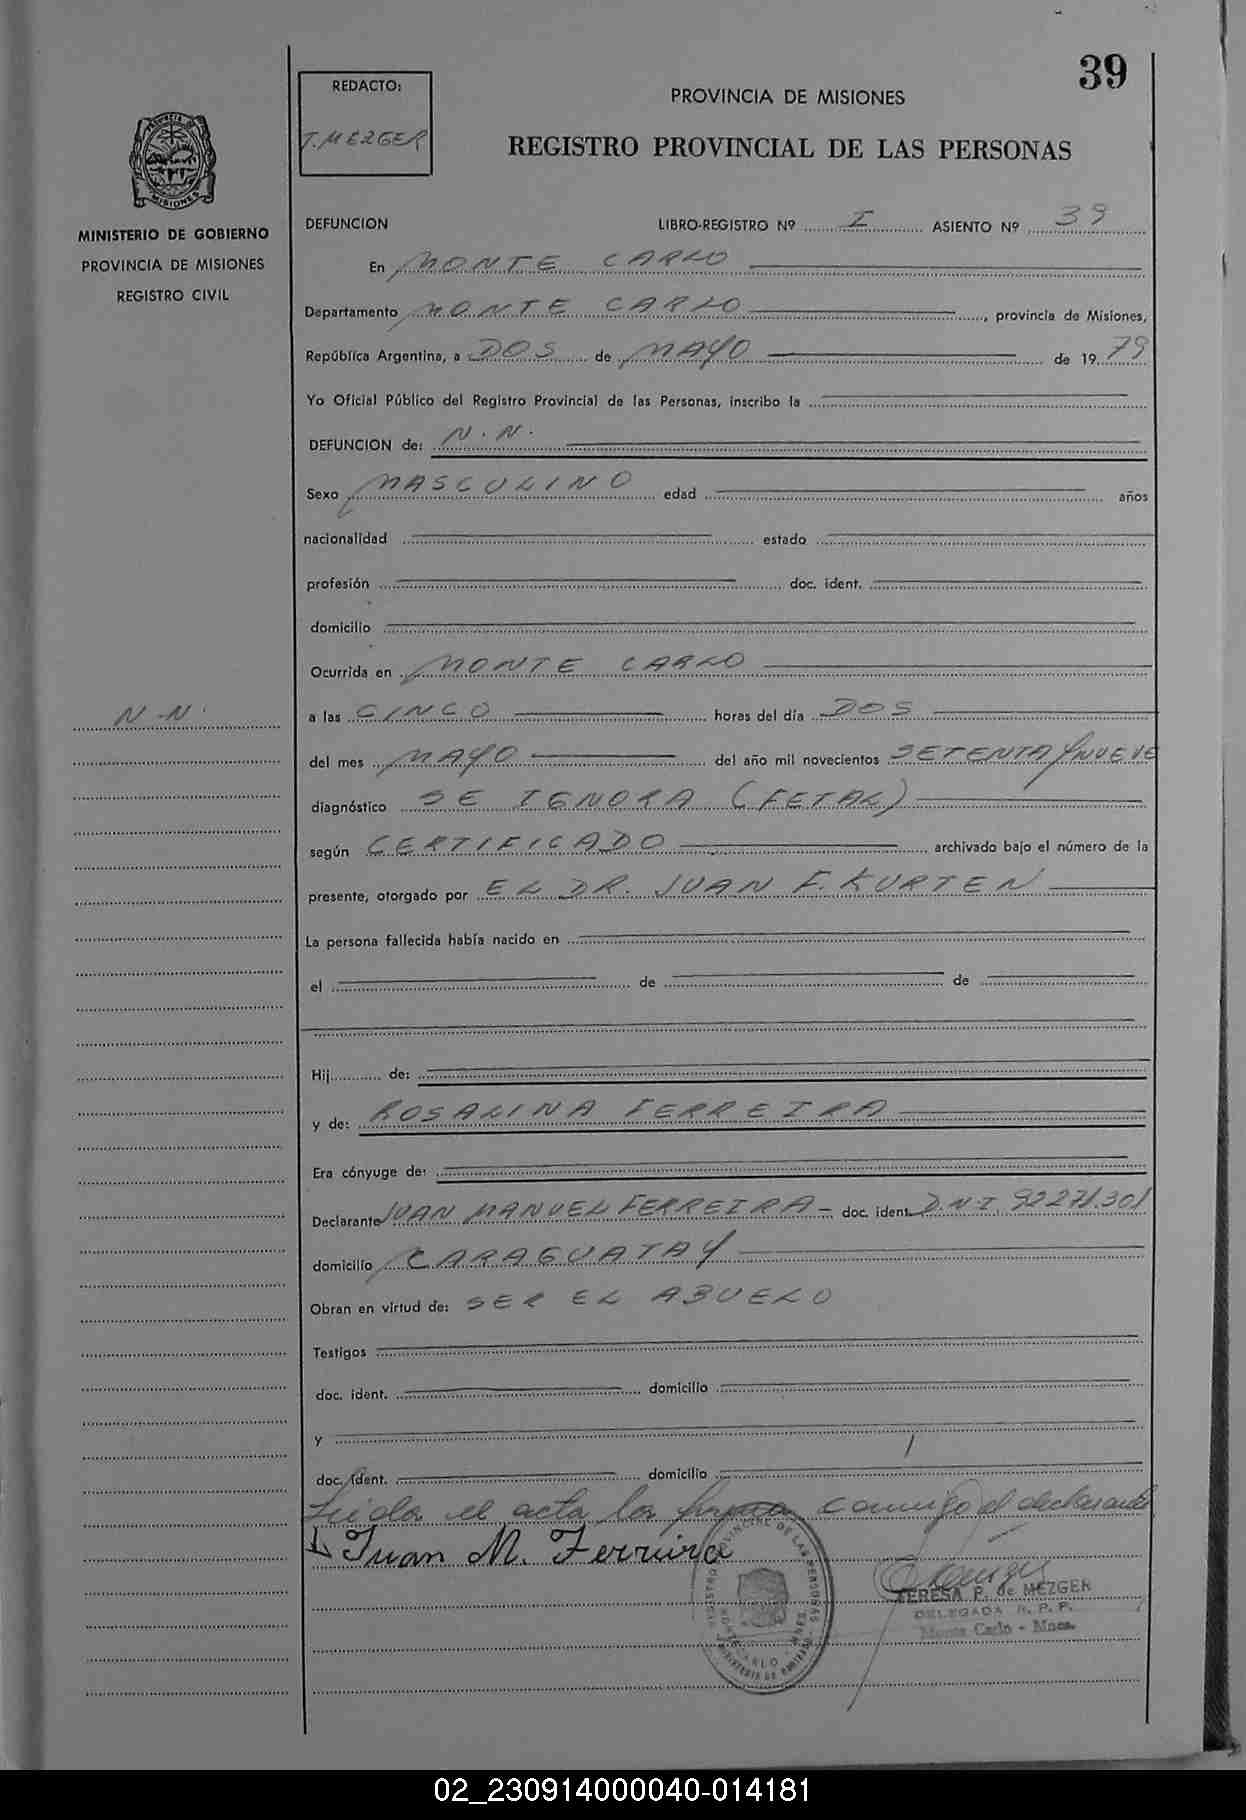 39
REDACTO:
T. MEZGER
PROVINCIA DE MISIONES
REGISTRO PROVINCIAL DE LAS PERSONAS
MISIONES
MINISTERIO DE GOBIERNO
PROVINCIA DE MISIONES
REGISTRO CIVIL
DEFUNCION LIBRO-REGISTRO Nº I ASIENTO Nº 39
En MONTE CARLO
Departamento MONTE CARLO, provincia de Misiones,
República Argentina, a DOS de MAYO de 19 79
Yo Oficial Público del Registro Provincial de las Personas, inscribo la
DEFUNCION de: N. N.
Sexo MASCULINO edad años
nacionalidad estado
profesión doc. ident.
domicilio
Ocurrida en MONTE CARLO
N-N.
a las CINCO horas del día DOS
del mes MAYO del año mil novecientos SETENTA Y NUEVE
diagnóstico SE IGNORA (FETAL)
según CERTIFICADO archivado bajo el número de la
presente, otorgado por EL DR. JUAN F. KURTEN
La persona fallecida había nacido en
el de de
Hij de:
y de: ROSALINA FERREIRA
Era cónyuge de:
Declarante JUAN MANUEL FERREIRA - doc. ident. D.N.I.
domicilio CARAGUATAY
Obran en virtud de: SER EL ABUELO
Testigos
doc. ident. domicilio
y
doc. ident. domicilio
Leida el acta la firma conmigo el declarante
Juan M. Ferreira
TERESA P. de MEZGER
DELEGADA R. P. P.
Monte Carlo - Mnes.
02_230914000040-014181